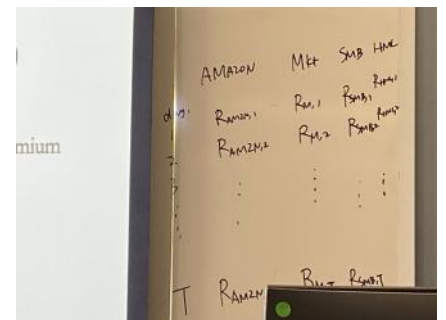 AMAZON Mkt SMB HML
day 1 R_AMZN,1 R_M,1 R_SMB,1 R_HML,1
mium
2 R_AMZN,2 R_M,2 R_SMB,2 R_HML,2
3
T R_AMZN R_M,T R_SMB,T